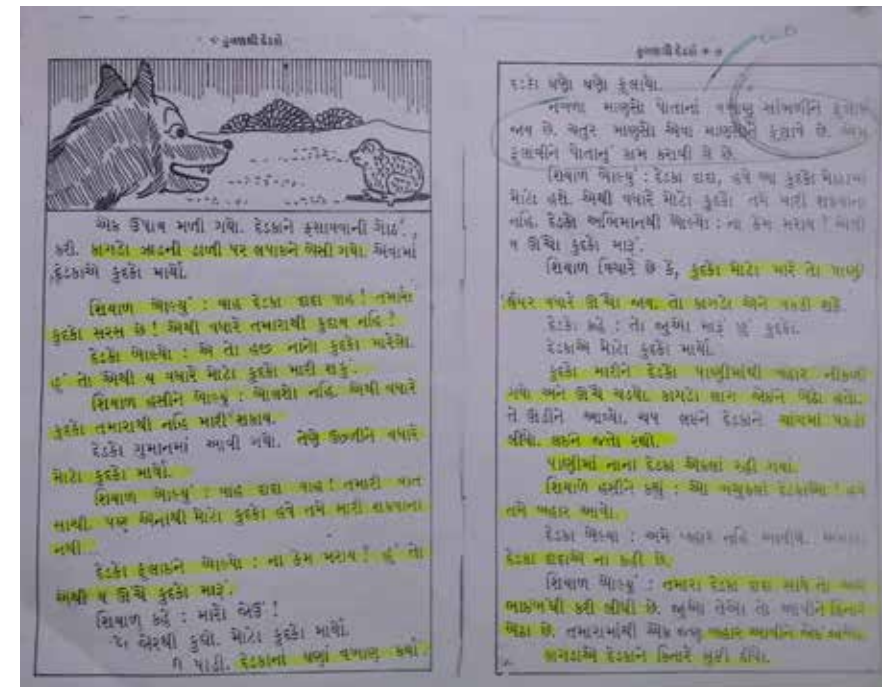 એક ઉપાય મળી ગયો. દેડકાને ફસાવવાની ગોઠ
કરી. કાગડો ઝાડની ડાળી પર લપાઈને બેસી ગયો. એવામાં
દેડકાએ કુદકો માર્યો.
શિયાળ બોલ્યું : વાહ દેડકા દાદા વાહ ! તમારો
કુદકો સરસ છે ! એથી વધારે તમારાથી કુદાય નહિ !
દેડકો બોલ્યો : એ તો હજી નાનો કુદકો મારેલો.
હું તો એથી ય વધારે મોટો કુદકો મારી શકું.
શિયાળ હસીને બોલ્યું : બોલશો નહિ. એથી વધારે
કુદકો તમારાથી નહિ મારી શકાય.
દેડકો ગુમાનમાં આવી ગયો. તેણે ઉછળીને વધારે
મોટો કુદકો માર્યો.
શિયાળ બોલ્યું : વાહ દાદા વાહ ! તમારી વાત
સાચી. પણ એનાથી મોટો કુદકો હવે તમે મારી શકવાના
નથી.
દેડકો ફુલાઈને બોલ્યો : ના કેમ મરાય ! હું તો
એથી ય ઊંચે કુદકો મારૂં.
શિયાળ કહે : મારો જોઉં !
જોરથી કુદ્યો. મોટો કુદકો માર્યો.
પાડી. દેડકાનાં ઘણાં વખાણ કર્યાં.
દેડકો ઘણો ઘણો ફુલાયો.
નબળા માણસો પોતાનાં વખાણ સાંભળીને ફુલાઈ
જાય છે. ચતુર માણસો એવા માણસોને ફુલાવે છે. એમ
ફુલાવીને પોતાનું કામ કરાવી લે છે.
શિયાળ બોલ્યું : દેડકા દાદા, હવે આ કુદકો મોટામાં
મોટો હશે. એથી વધારે મોટો કુદકો તમે મારી શકવાના
નહિ. દેડકો અભિમાનથી બોલ્યો : ના કેમ મરાય ! એથી
ય ઊંચો કુદકો મારૂં.
શિયાળ વિચારે છે કે, કુદકો મોટો મારે તો પાણી
ઉપર વધારે ઊંચો જાય. તો કાગડો એને પકડી શકે.
દેડકો કહે : તો જુઓ મારૂં છું કુદકો.
દેડકાએ મોટો કુદકો માર્યો.
કુદકો મારીને દેડકો પાણીમાંથી બહાર નીકળી
ગયો અને ઊંચે ચડયો. કાગડો લાગ જોઈને બેઠો હતો.
તે ઊડીને આવ્યો. ચપ લઈને દેડકાને ચાંચમાં પકડી
લીધો. લઈને જતો રહ્યો.
પાણીમાં નાના દેડકા એકલા રહી ગયા.
શિયાળે હસીને કહ્યું : આ બચુકલાં દેડકાઓ ! હવે
તમે બહાર આવો.
દેડકા બોલ્યા : અમે બહાર નહિ આવીએ.
દેડકા દાદાએ ના કહી છે.
શિયાળ બોલ્યું : તમારા દેડકા દાદા સાથે તો અમે
ભાઈબંધી કરી લીધી છે. જુઓ તેઓ તો આવીને કિનારે
બેઠા છે. તમારામાંથી એક જણ બહાર આવીને જોઈ જાઓ.
કાગડાએ દેડકાને કિનારે મુકી દીધો.